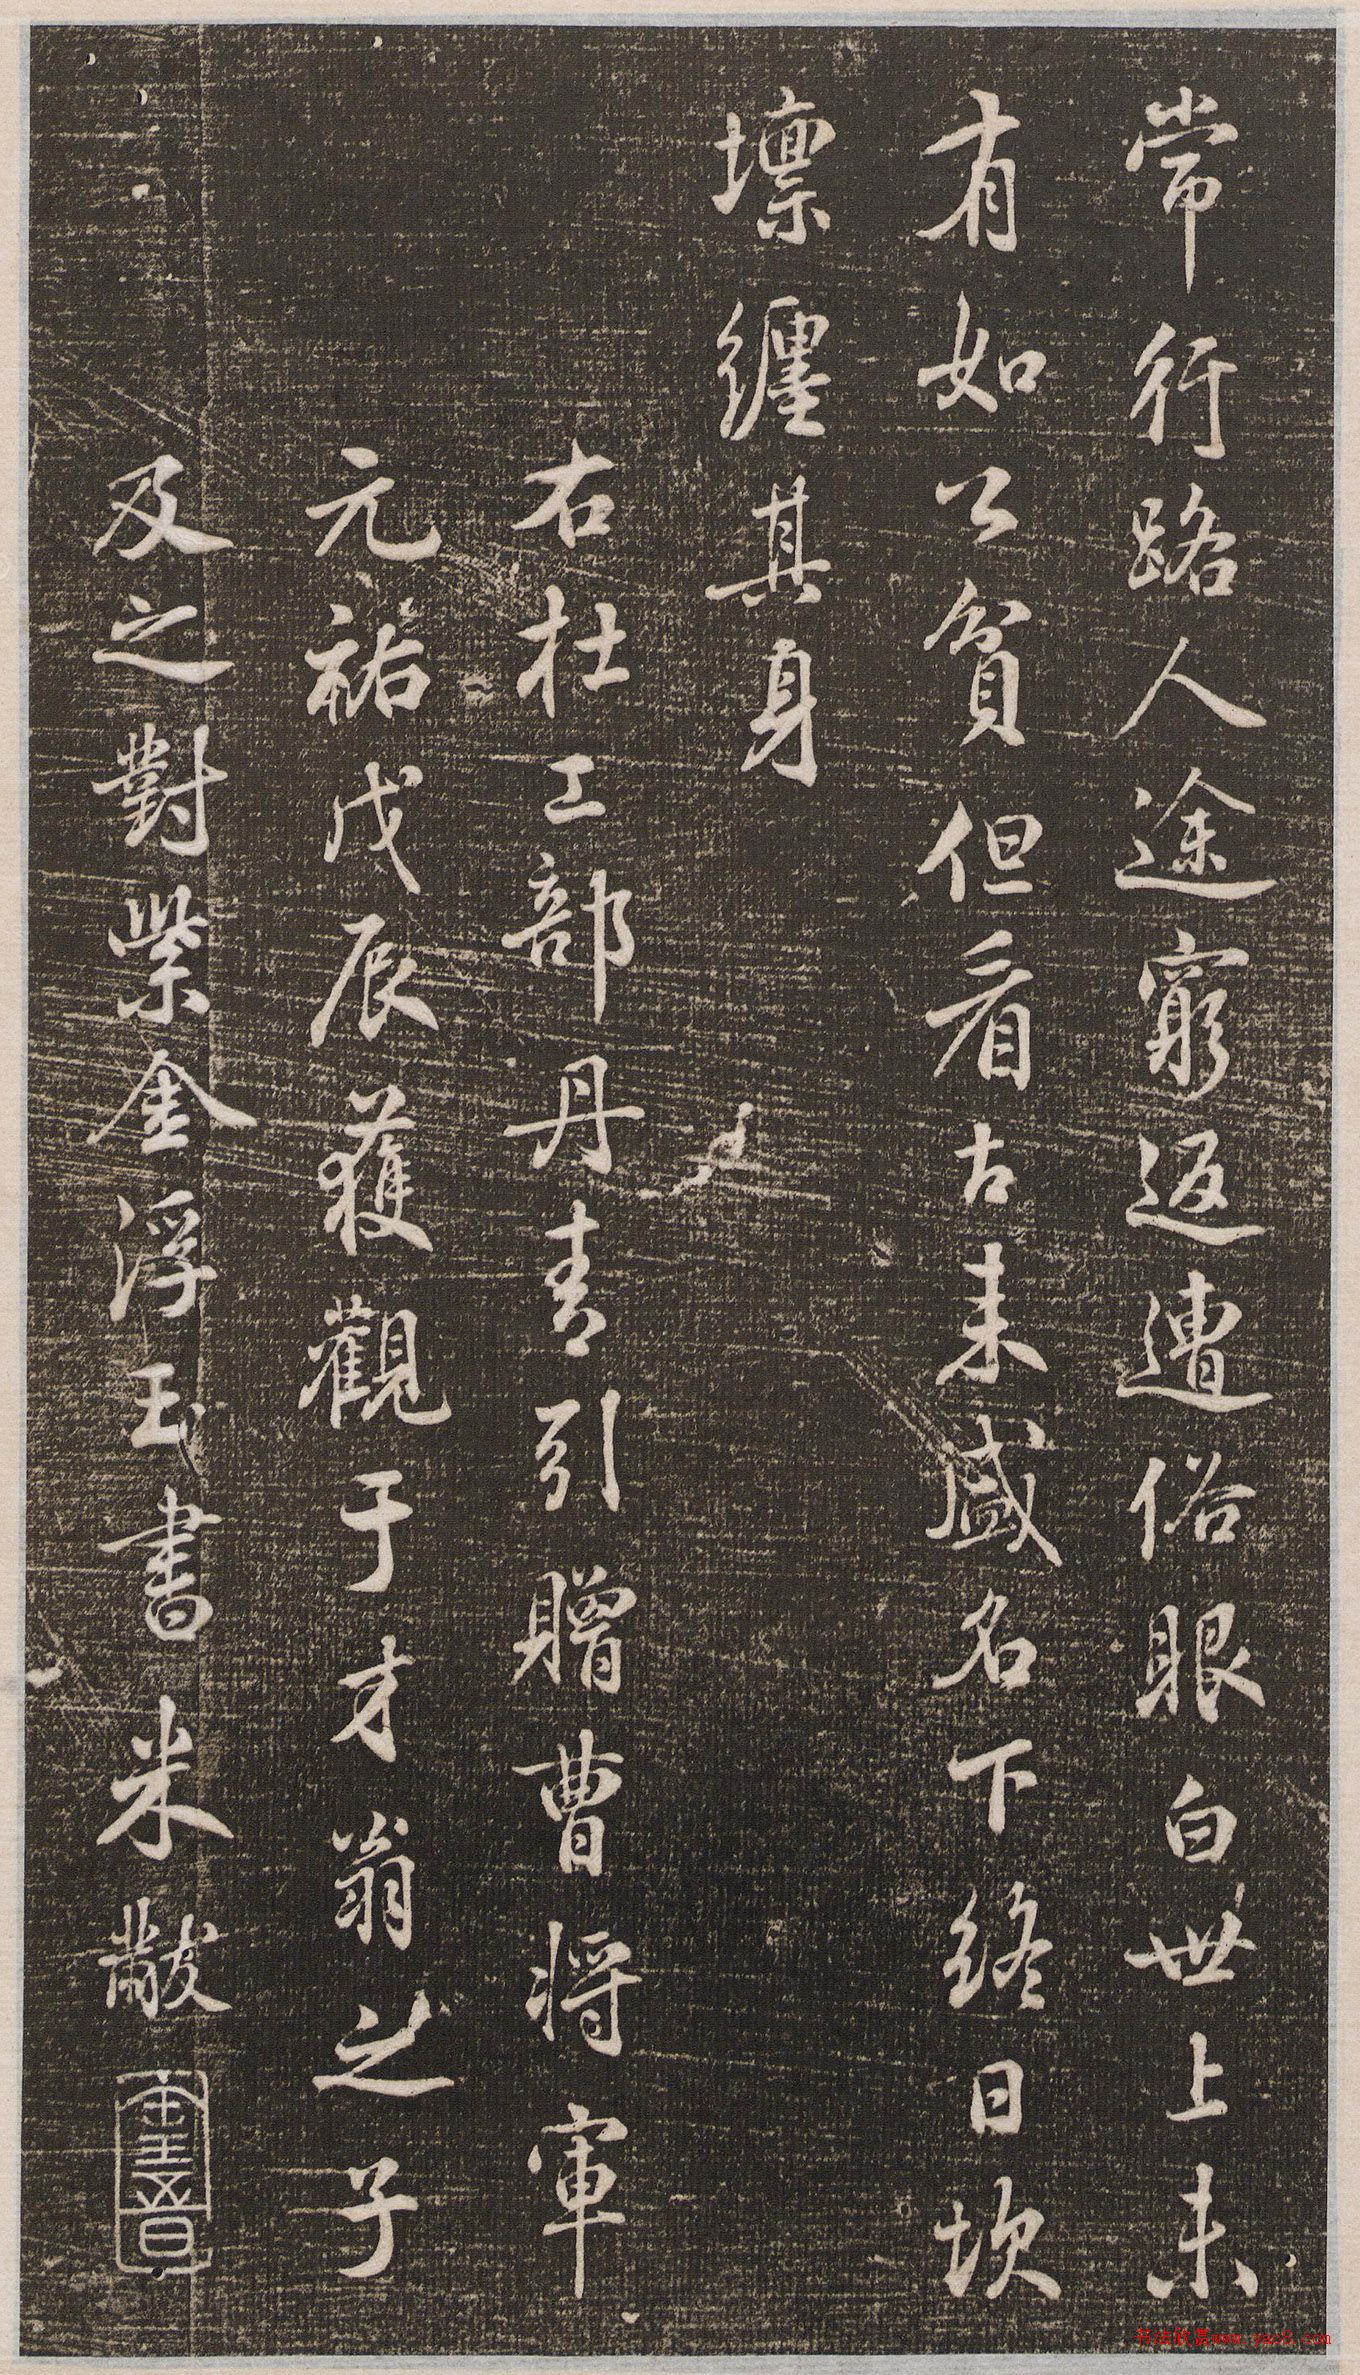 常行路人途窮返遭俗眼白世上未
有如公貧但看古来盛名下終日坎
壈纏其身
右杜工部丹青引贈曹将軍
元祐戊辰獲觀于才翁之子
及之對紫金浮玉書米黻
书法欣赏www.yac8.com